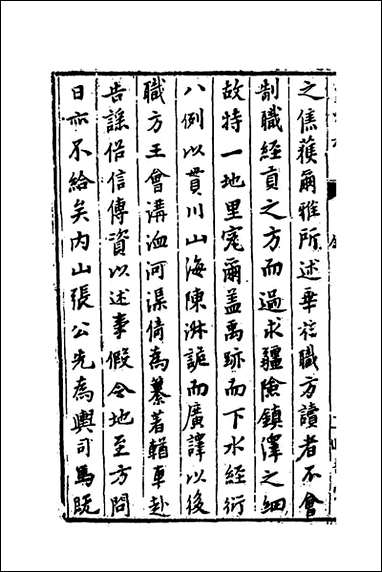 之焦穫爾雅所述率在職方讀者不會
制職經貢之方而過求疆險鎮澤之細
故特一地里寃爾盖禹跡而下水經衍
八例以貫川山海陳渉詭而廣譯以後
職方王會溝洫河渠倚為纂著輶車赴
告謡俗信傳資以述事假令地至方問
日亦不給矣内山張公先為輿司馬既